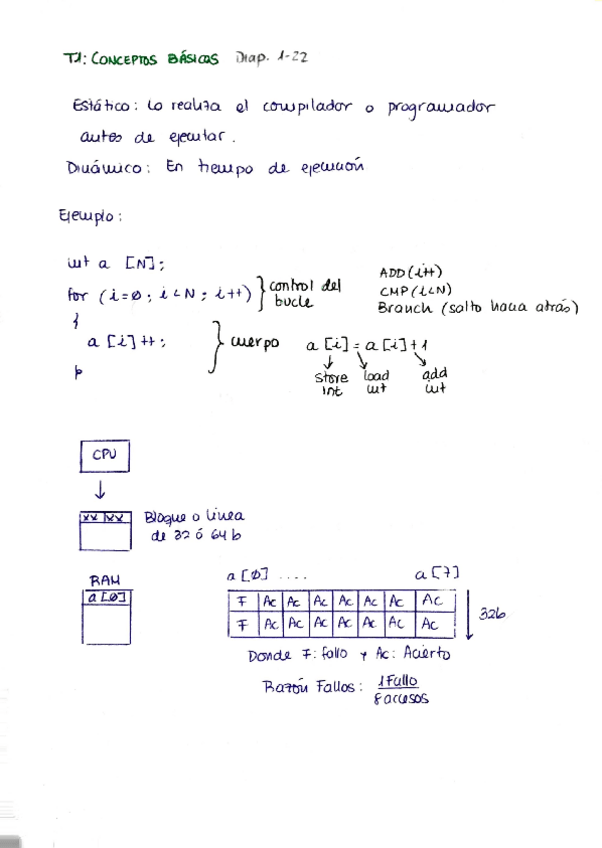 T1: CONCEPTOS BÁSICOS Diap. 1-22
Estático: Lo realiza el compilador o programador
antes de ejecutar.
Dinámico: En tiempo de ejecución
Ejemplo:
int a [N];
for (i=0; i<N; i++) } control del bucle
{
a[i]++; } cuerpo
}
ADD (i++)
CMP (i<N)
Branch (salto hacia atrás)
a[i] = a[i]+1
store int load int add int
CPU
xx xx
Bloque o línea
de 32 ó 64 b
RAM
a[0]
a[0] .... a[7]
F Ac Ac Ac Ac Ac Ac Ac
F Ac Ac Ac Ac Ac Ac Ac
32b
Donde F: fallo y Ac: Acierto
Razón Fallos: 1 Fallo
8 accesos